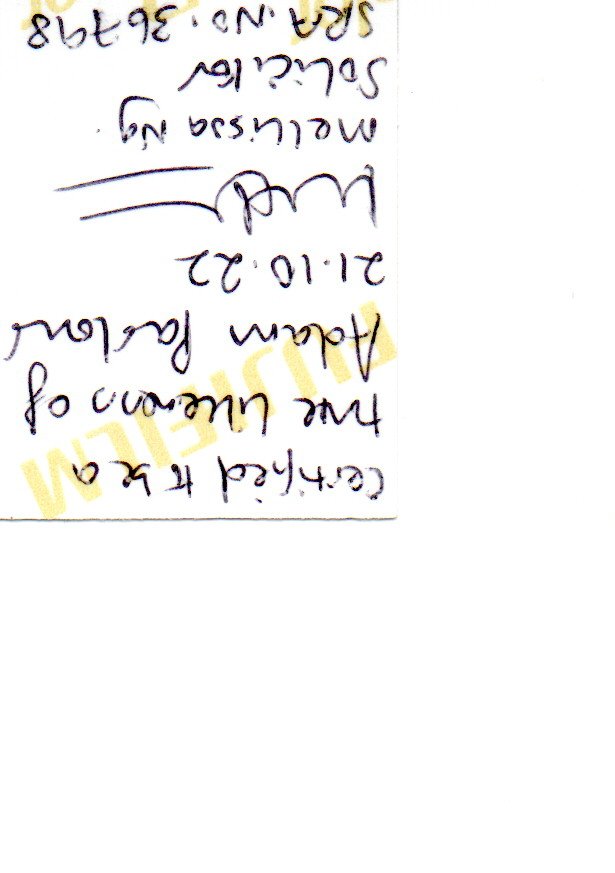 Certified to be a
true likeness of
Adam
21.10.22
Melissa Ng
Solicitor
SRA No: 36798
FUJIFILM